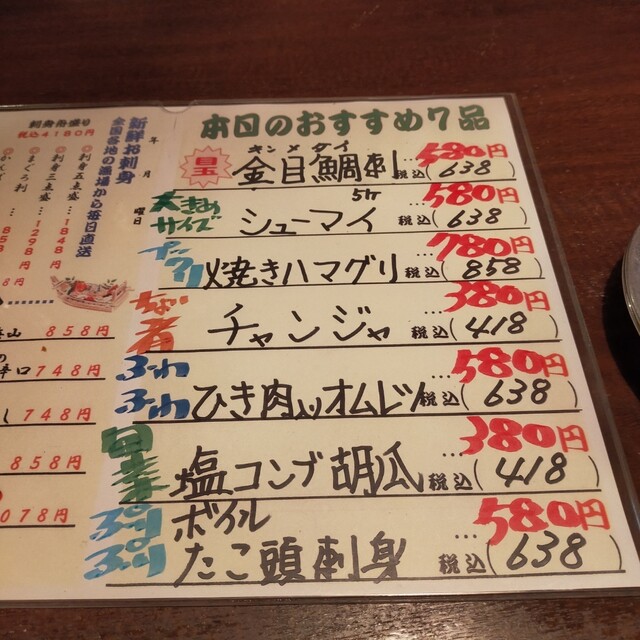 本日のおすすめ7品
目玉
キンメダイ
金目鯛刺 …580円
税込(638)
大きめサイズ
5ケ
シューマイ …580円
税込(638)
焼きハマグリ …780円
税込(858)
チャンジャ …380円
税込(418)
ふわふわ
ひき肉入りオムレツ …580円
税込(638)
塩コンブ胡瓜 …380円
税込(418)
ぷりぷり
ボイル
たこ頭刺身 …580円
税込(638)
年 月 曜日
新鮮お刺身
全国各地の漁場から毎日直送
刺身舟盛り
税込4180円
刺身五点盛…1848円
刺身三点盛…1298円
まぐろ刺
858円
辛口 748円
748円
858円
078円